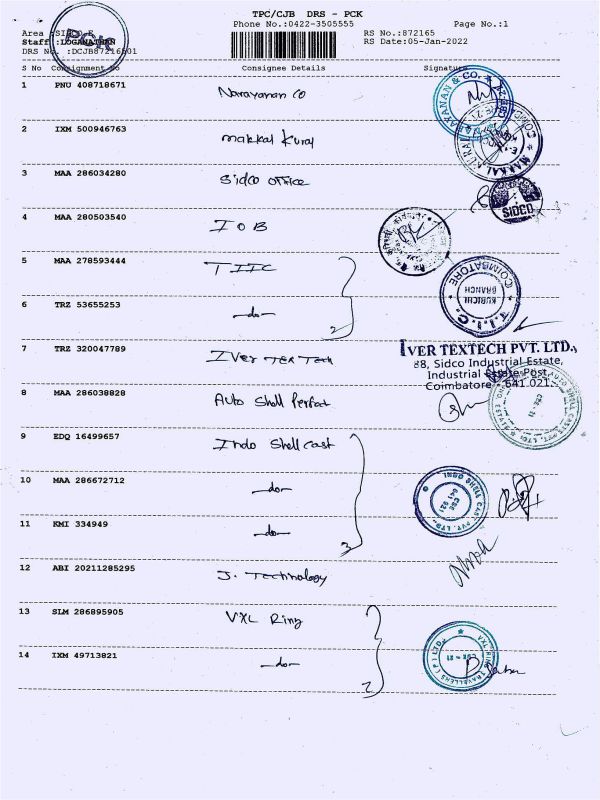 TPC/CJB DRS - PCK
Phone No.:0422-3505555 Page No.:1
Area :SIDCO-E RS No.:872165
Staff :LOGANATHAN RS Date:05-Jan-2022
DRS No. :DCJB87216501
S No Consignment No Consignee Details Signature
1 PNU 408718671 Narayanan co
2 IXM 500946763 makkal Kural
3 MAA 286034280 Sidco office
SIDCO
4 MAA 280503540 IOB
5 MAA 278593444 TIIC
COIMBATORE
KURICHI BRANCH
T.I.I.C.
6 TRZ 53655253 -do-
2
7 TRZ 320047789 Iver Tex Tech
IVER TEXTECH PVT. LTD.,
88, Sidco Industrial Estate,
Industrial Estate Post,
Coimbatore - 641 021.
8 MAA 286038828 Auto Shell Perfect
9 EDQ 16499657 Indo Shell cast
10 MAA 286672712 -do-
INDO SHELL CAST PVT. LTD.
CBE 641 021
11 KMI 334949 -do-
3
12 ABI 20211285295 J. Technology
13 SLM 286895905 VXL Ring
14 IXM 49713821 -do-
VXL RING TRAVELLERS (P) LTD.,
CBE - 21
2